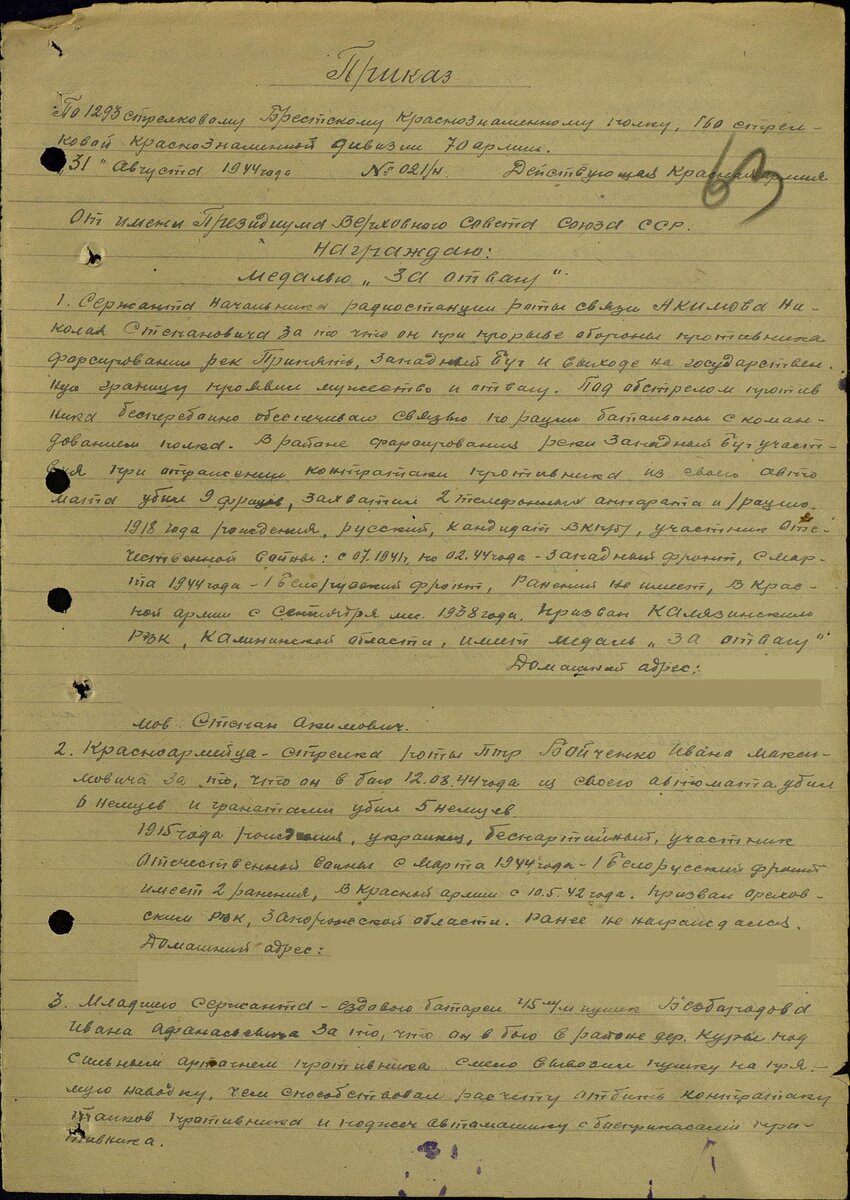 Приказ
По 1293 стрелковому Брестскому Краснознаменному полку, 160 стрел-
ковой Краснознаменной дивизии 70 армии.
„31" Августа 1944 года № 021/н. Действующая Красная Армия
63
От имени Президиума Верховного Совета Союза ССР.
Награждаю:
Медалью „За отвагу".
1. Сержанта начальника радиостанции роты связи Акимова Ни-
колая Степановича за то что он при прорыве обороны противника
форсировании рек Припять, Западный Буг и выходе на государствен-
ную границу проявил мужество и отвагу. Под обстрелом против
ника бесперебойно обеспечивал связью по рации батальоны с коман-
дованием полка. В районе форсирования реки Западный Буг участ-
вуя при отражении контратаки противника из своего авто
мата убил 9 фрицев, захватил 2 телефонных аппарата и 1 рацию.
1918 года рождения, русский, кандидат ВКП(б), участник Оте-
чественной войны: с 07.1941г. по 02.44 года - Западный фронт, с мар-
та 1944 года - 1 Белорусский фронт, Ранений не имеет, В Крас-
ной армии с сентября м-ц. 1938 года. Призван Калязинским
РВК, Калининской области, имеет медаль „За отвагу"
Домашний адрес:
мов Степан Акимович.
2. Красноармейца - стрелка роты ПТР Бойченко Ивана Макси-
мовича за то, что он в бою 12.08.44 года из своего автомата убил
6 немцев и гранатами убил 5 немцев
1915 года рождения, украинец, беспартийный, участник
Отечественной войны с марта 1944 года - 1 Белорусский фронт
имеет 2 ранения, В Красной армии с 10.5.42 года. Призван Орехов-
ским РВК, Запорожской области. Ранее не награждался.
Домашний адрес:
3. Младшего сержанта - ездового батареи 45 м/м пушек Безбородова
Ивана Афанасьевича за то, что он в бою в районе дер. Куры под
сильным артогнем противника смело вывозил пушку на пря-
мую наводку, чем способствовал расчету отбить контратаку
танков противника и поджеч автомашину с боеприпасами про-
тивника.